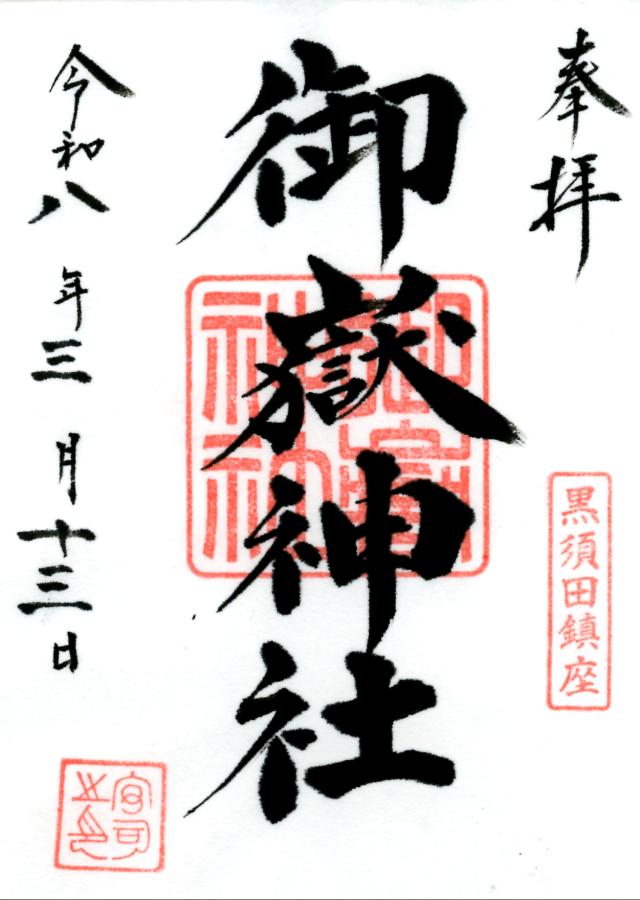 奉拝
黒須田鎮座
御嶽神社
御嶽神社
令和八年三月十三日
宮司之印